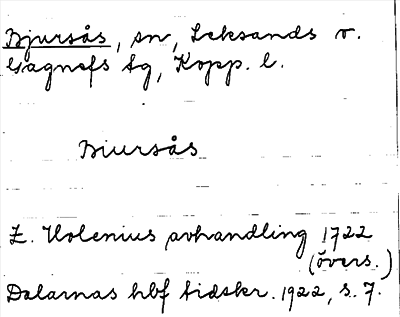 Bjursås, sn, Leksands o.
Gagnefs tg, Kopp. l.
Biursås
E. Holenius avhandling 1722
(övers.)
Dalarnas hbf tidskr. 1922, s. 7.